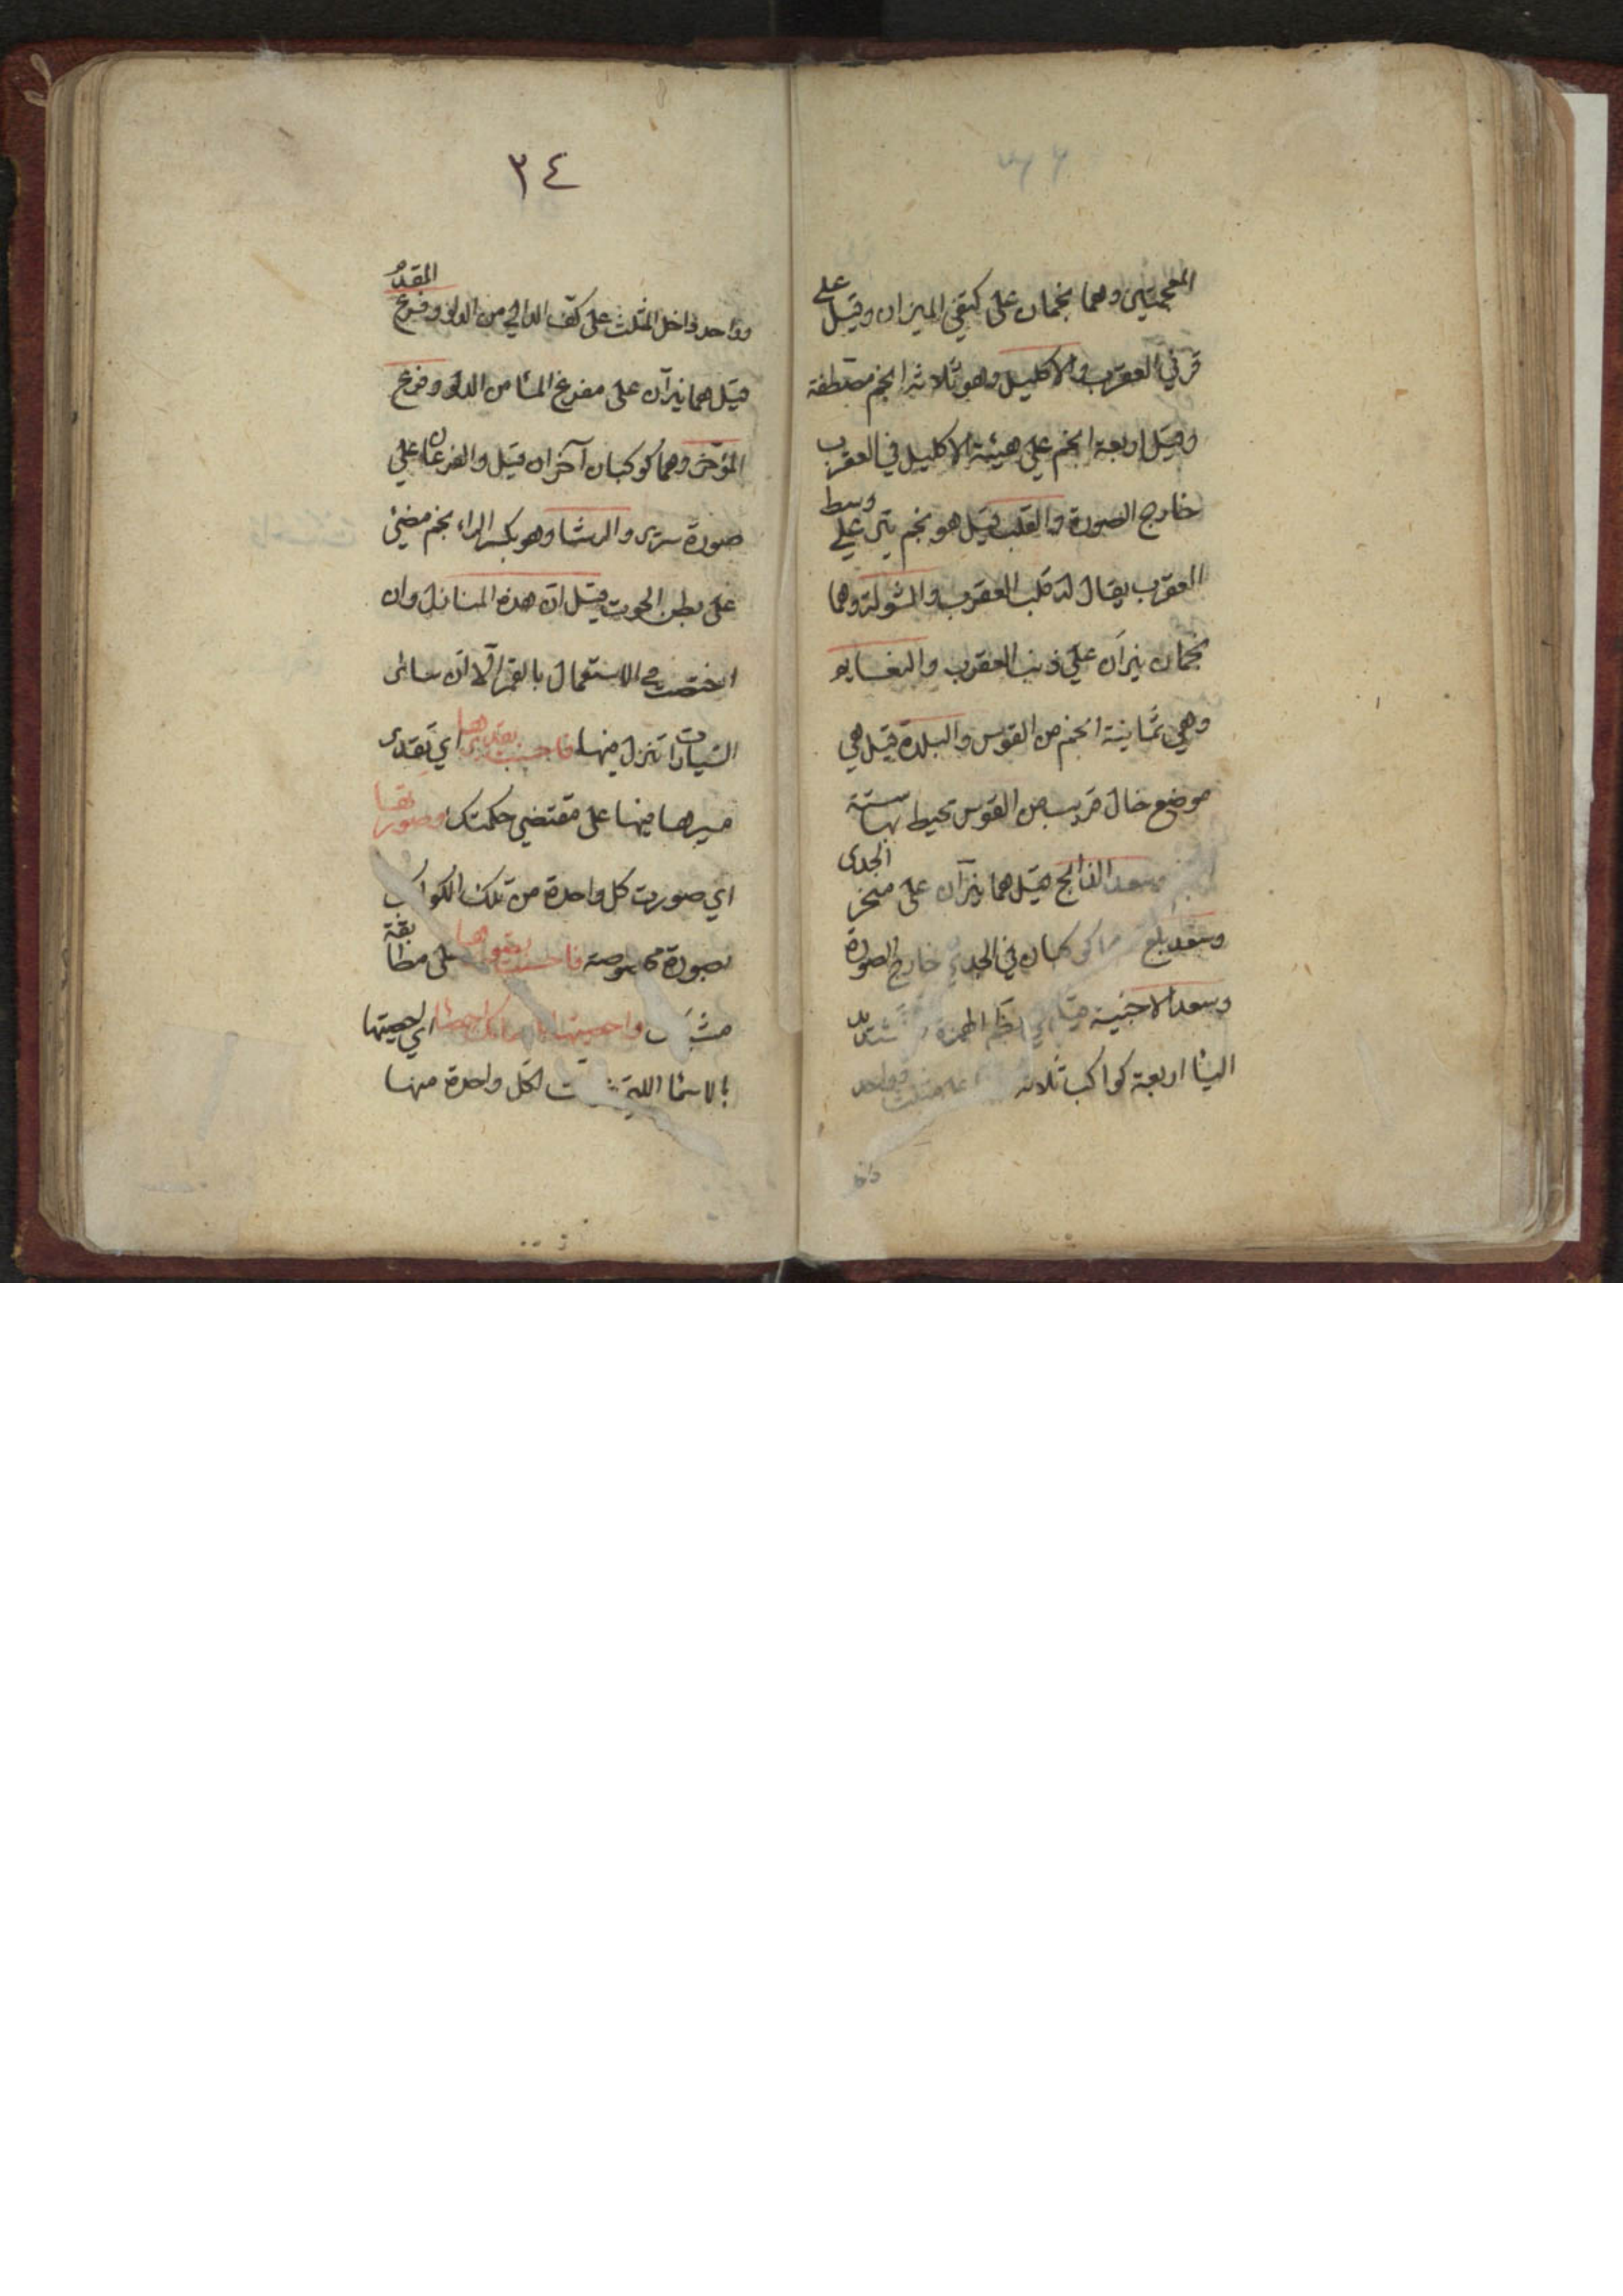 المعجمتين وهما نجمان على كفتي الميزان وقيل على
قرني العقرب والاكليل وهو ثلاثة انجم مصطفة
وقيل اربعة انجم علي هيئة الاكليل في العقرب
خارج الصورة والقلب قيل هو نجم نير علي وسط
العقرب يقال له قلب العقرب والشولة وهما
نجمان نيرآن علي ذنب العقرب والنعايم
وهي ثمانية انجم من القوس والبلدة قيل هي
موضع خال قريب من القوس تحيط بها ستة
وسعد الذابح قيل هما نيرآن على منخر الجدي
وسعد بلع كوكبان في الجدي خارج الصورة
وسعد الاخبية الهمزة
اليا اربعة كواكب ثلاثة مثلث وواحد
٣٤
وواحد داخل المثلث على كتف الدالي من الدلو وفرغ المقدم
قيل هما نيرآن على مفرغ الما من الدلو وفرغ
المؤخر وهما كوكبان آخران قيل والفرغان علي
صورة سرير والرشا وهو بكسر الراء نجم مضيئ
على بطن الحوت قيل ان هذه المنازل وان
اختصت في الاستعمال بالقمر الا ان سائر
السيارات تنزل منها فاحسنت تقديرها اي تقدير
سيرها فيها على مقتضي حكمتك وصورتها
اي صورت كل واحدة من تلك الكواكب
بصورة مخصوصة فاحسنت على مطابقة
واحصيتها باسمائك احصاء اي احصيتها
بالاسما اللتي لكل واحدة منها